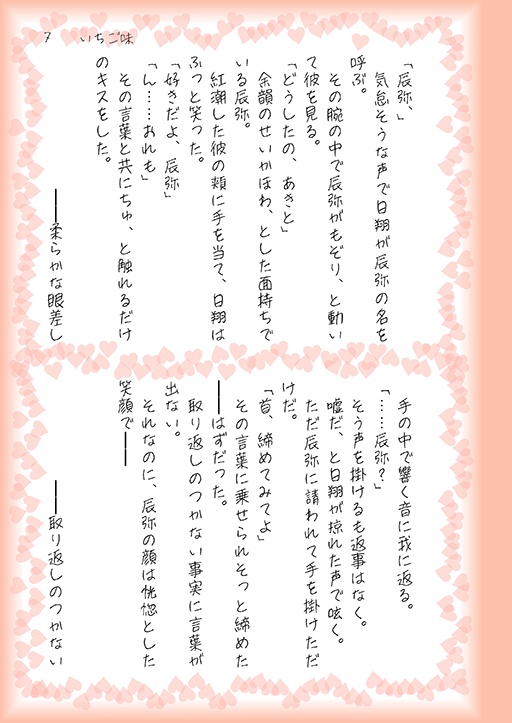 7 いちご味
「辰弥、」
気怠そうな声で日翔が辰弥の名を
呼ぶ。
その腕の中で辰弥がもぞり、と動い
て彼を見る。
「どうしたの、あきと」
余韻のせいかほわ、とした面持ちで
いる辰弥。
紅潮した彼の頬に手を当て、日翔は
ふっと笑った。
「好きだよ、辰弥」
「ん……おれも」
その言葉と共にちゅ、と触れるだけ
のキスをした。
――柔らかな眼差し
手の中で響く音に我に返る。
「……辰弥?」
そう声を掛けるも返事はなく。
嘘だ、と日翔が掠れた声で呟く。
ただ辰弥に請われて手を掛けただ
けだ。
「首、締めてみてよ」
その言葉に乗せられそっと締めた
――はずだった。
取り返しのつかない事実に言葉が
出ない。
それなのに、辰弥の顔は恍惚とした
笑顔で――
――取り返しのつかない